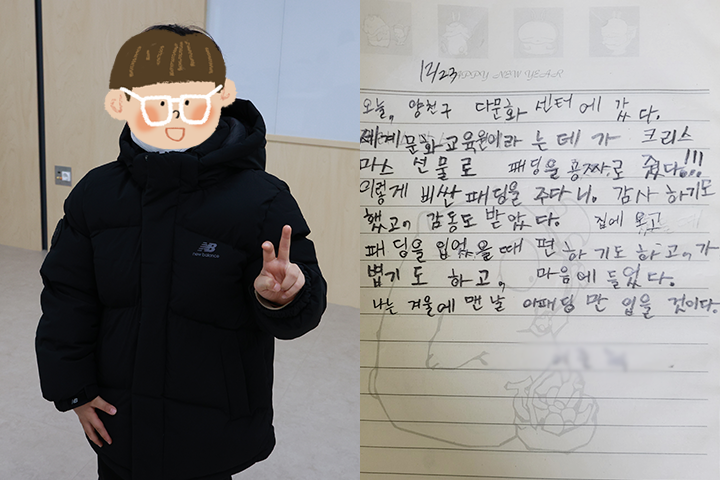 NB
new balance
12/23
HAPPY NEW YEAR
오늘, 양천구 다문화 센터에 갔다.
세계문화교육원이라는데가 크리스
마스 선물로 패딩을 공짜로 줬다!!!
이렇게 비싼 패딩을 주다니. 감사하기도
했고, 감동도 받았다. 집에 오고
패딩을 입었을때 편하기도 하고, 가
볍기도 하고, 마음에 들었다.
나는 겨울에 맨날 이패딩만 입을 것이다.